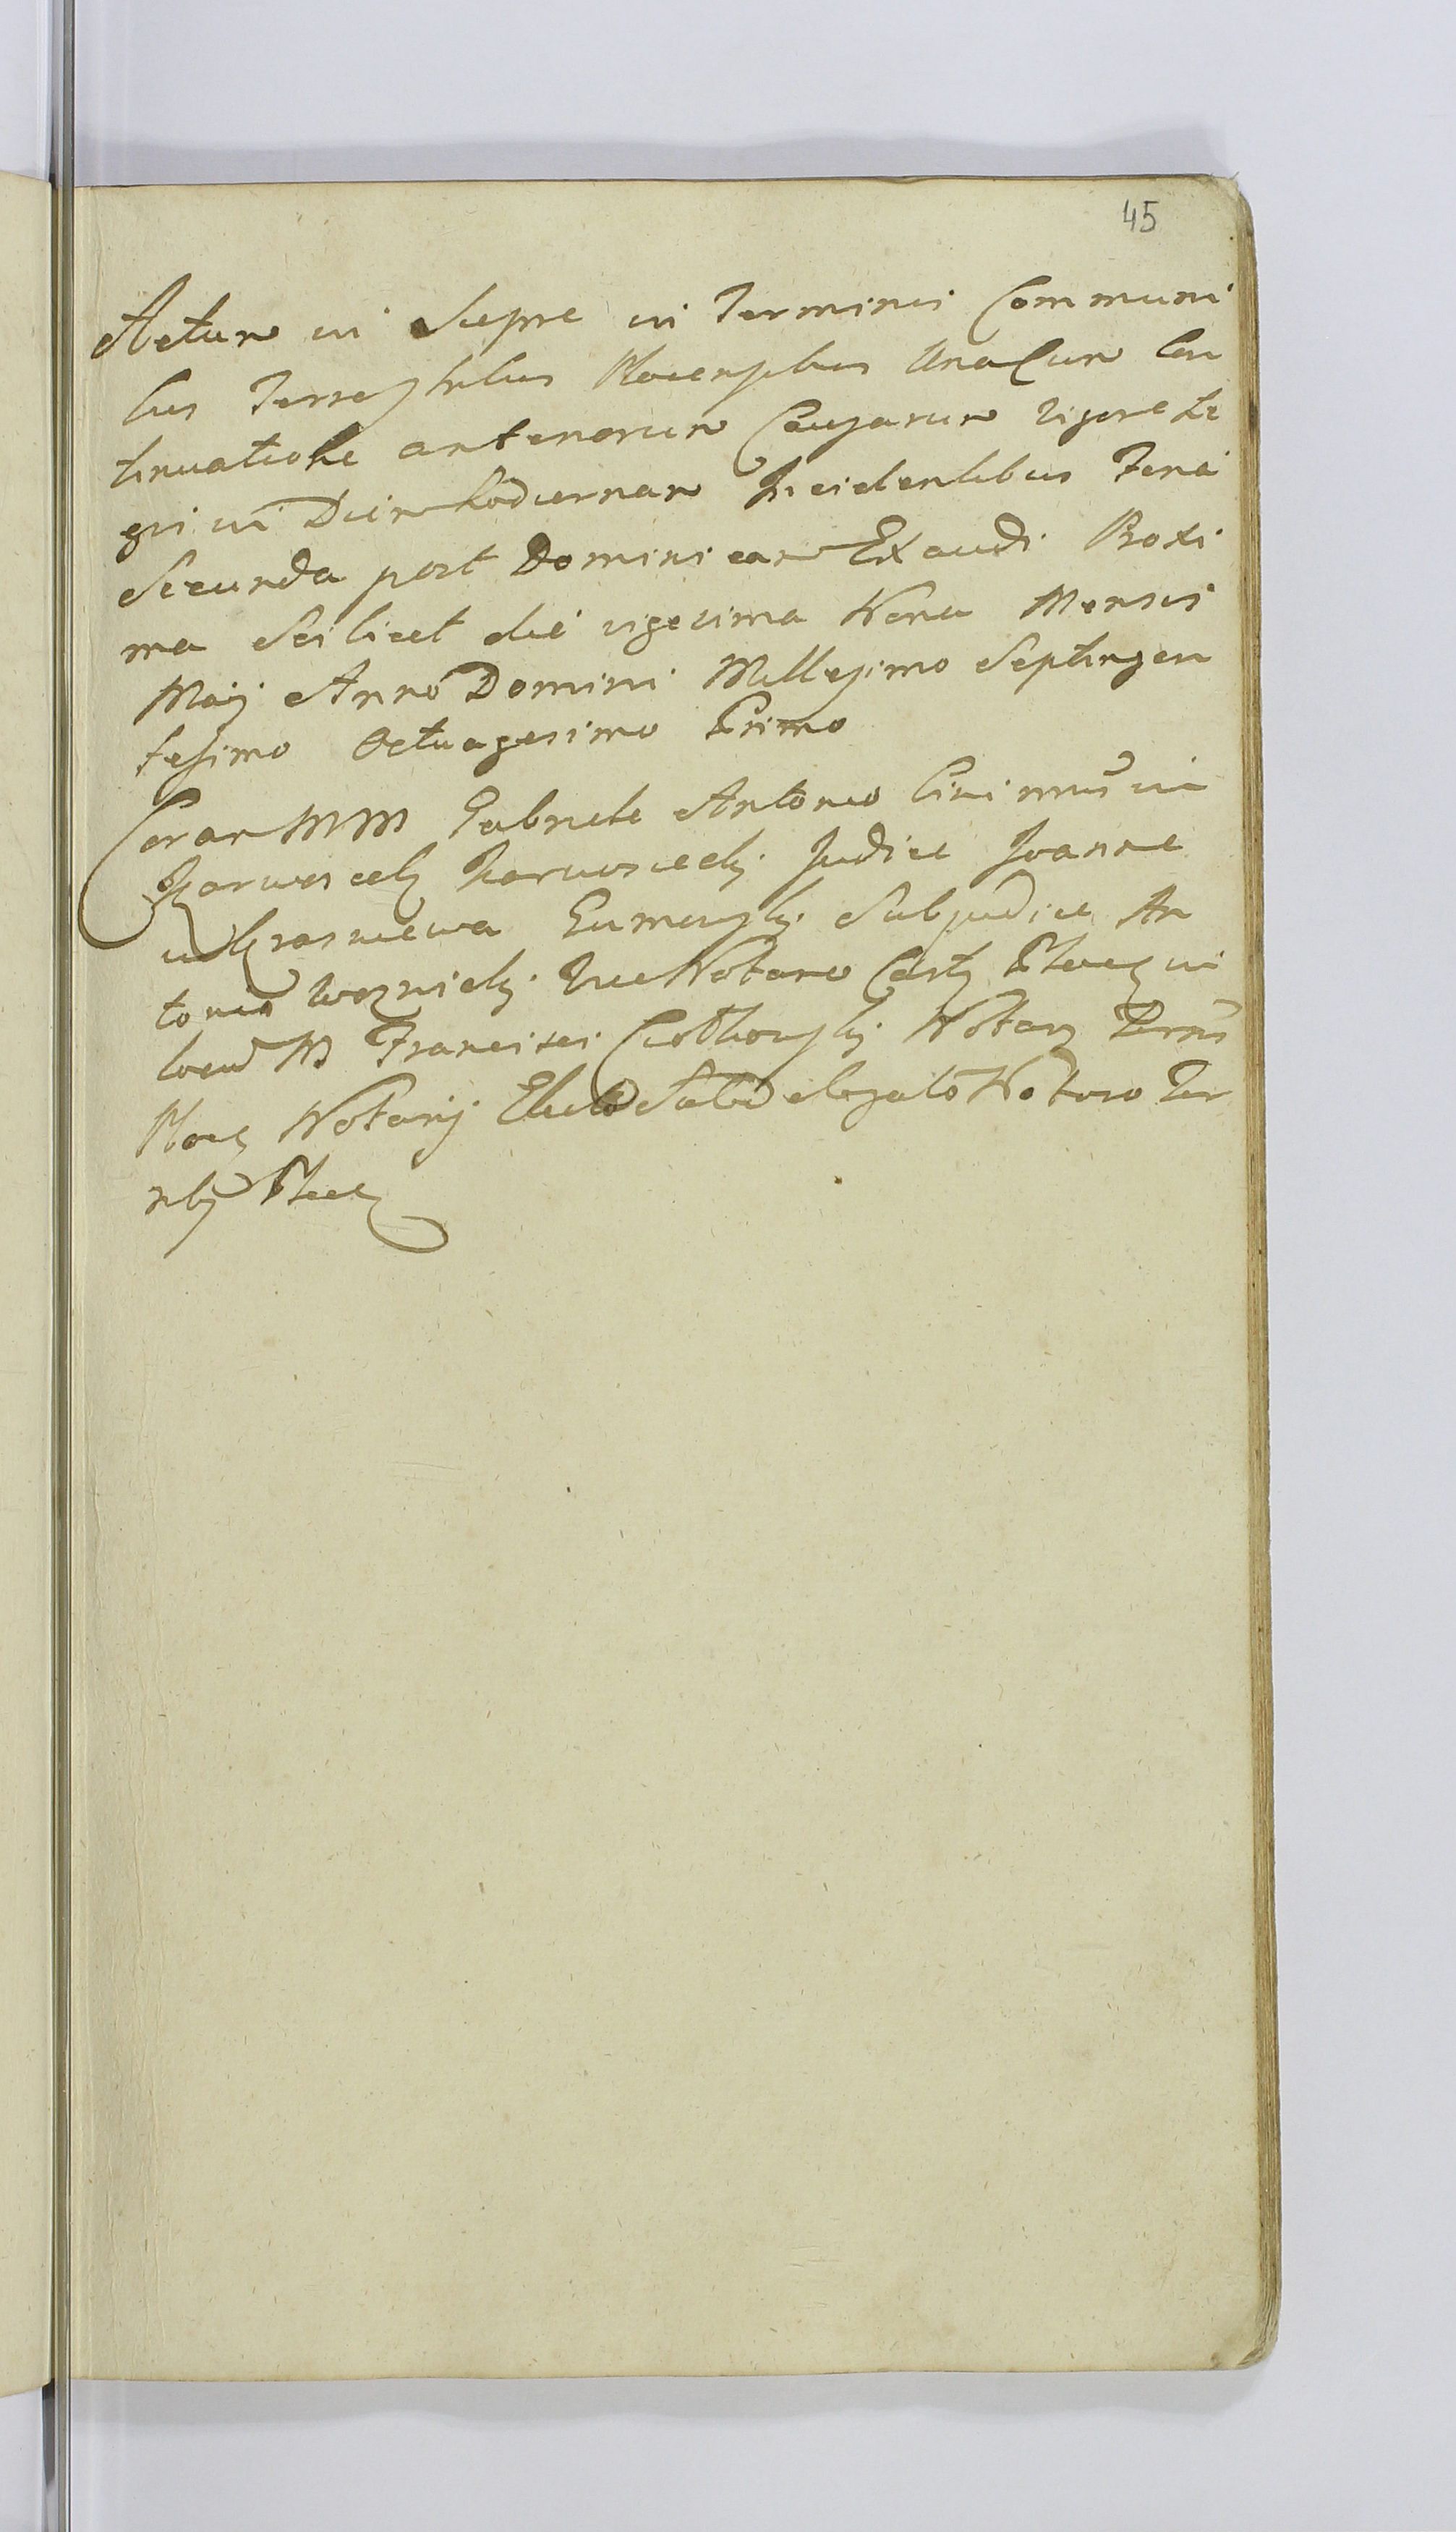 45
Actum in Sieprc in Terminis Communi
bus Terrestribus Plocensibus Una Cum Con
tinuatione anteriorum Causarum vigore Le
gis in Diem hodiernam Incidentibus Feria
Secunda post Dominicam Exaudi Proxi
ma Scilicet die vigesima Nona Mensis
Maij Anno Domini Millesimo Septingen
tesimo Octuagesimo Primo
Coram MM Gabriele Antonio in
Judice Joanne
in Krasniewa Subjudice An
tonio Woznicki Vice Notario Plocen in
locum M Francisci Notarij
Ploc Notarij Electo Subdelegato Notario Ter
Ploc